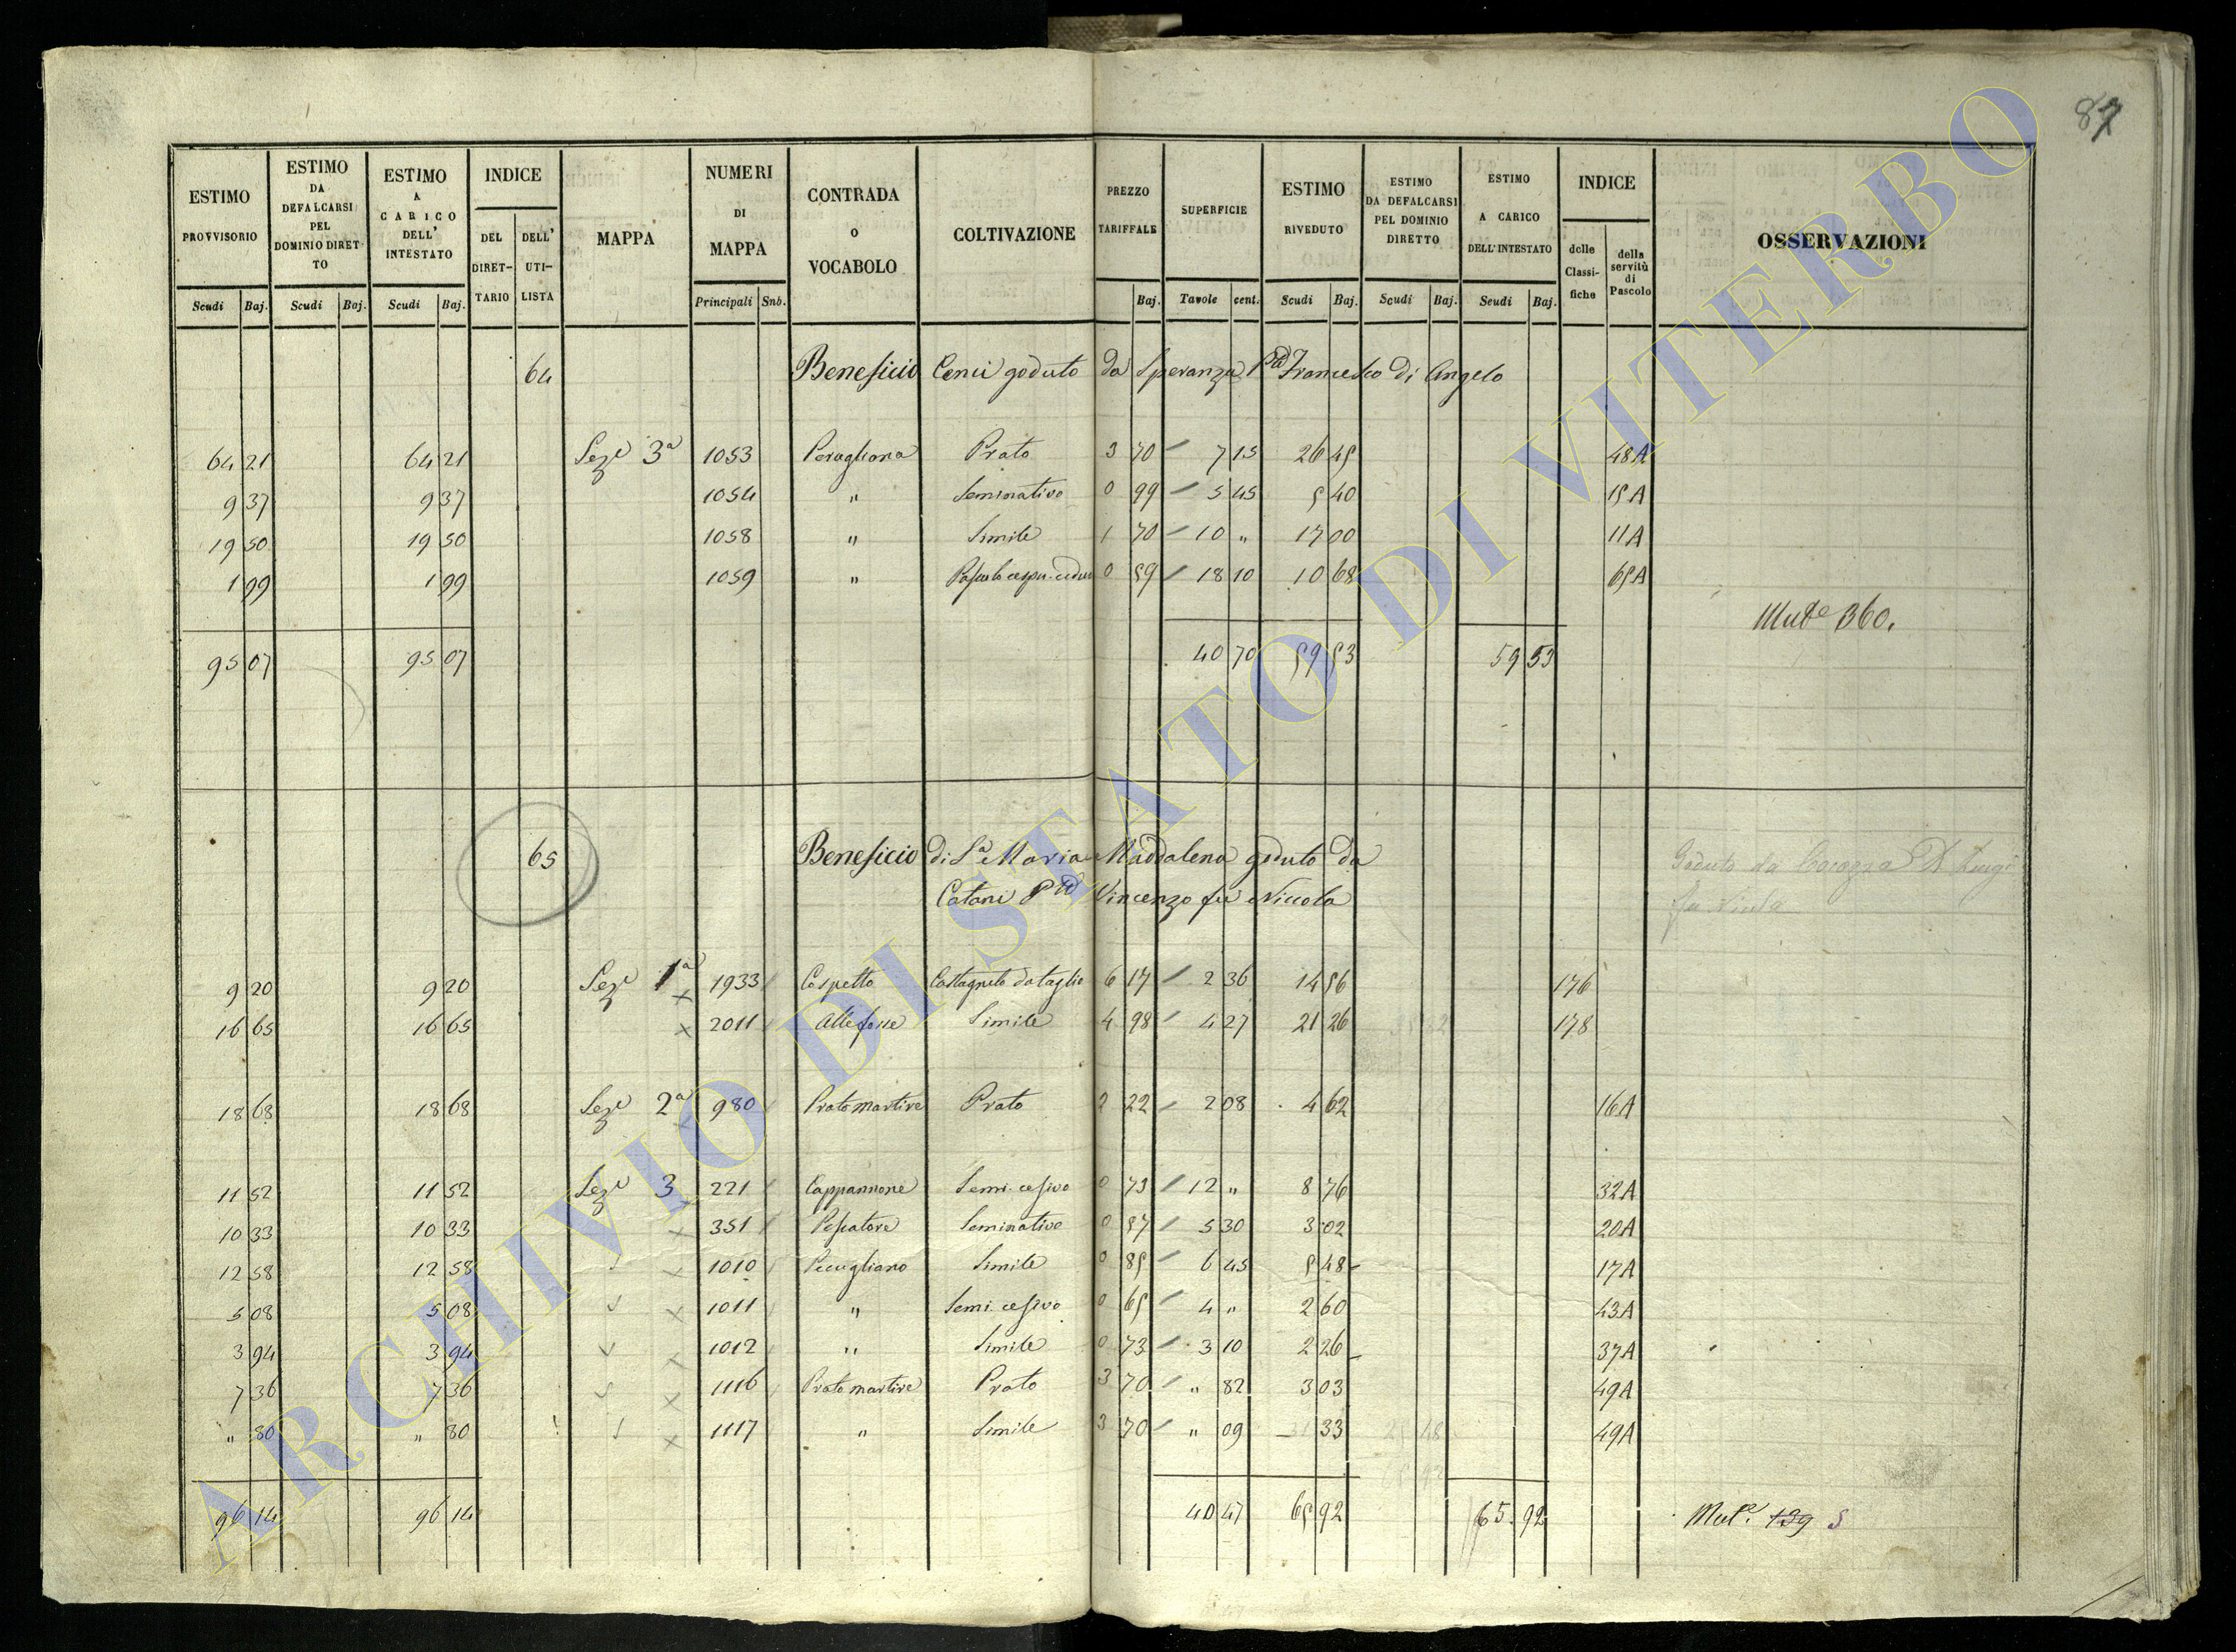 87
ESTIMO PROVVISORIO ESTIMO DA DEFALCARSI PEL DOMINIO DIRETTO ESTIMO A CARICO DELL' INTESTATO INDICE DEL DIRETTARIO DELL' UTILISTA MAPPA NUMERI DI MAPPA CONTRADA O VOCABOLO COLTIVAZIONE PREZZO TARIFFALE SUPERFICIE ESTIMO RIVEDUTO ESTIMO DA DEFALCARSI PEL DOMINIO DIRETTO ESTIMO A CARICO DELL'INTESTATO INDICE delle Classifiche della servitù di Pascolo OSSERVAZIONI
Scudi Baj. Scudi Baj. Scudi Baj. Principali Snb. Baj. Tavole cent. Scudi Baj. Scudi Baj. Scudi Baj.
64 Beneficio Cenci goduto da Speranza Francesco di Angelo
64 21 64 21 Seze 3a 1053 Perugliana Prato 3 70 7 15 26 45 48A
9 37 9 37 1054 " Seminativo 0 99 5 45 5 40 15A
19 50 19 50 1058 " Simile 1 70 10 " 17 00 11A
1 99 1 99 1059 " 0 59 18 10 10 68 65A
Mute 360.
95 07 95 07 40 70 59 53 59 53
65 Beneficio di Sa Maria Maddalena goduto da
Catani Vincenzo fu Niccola
Goduto da Luigi
fu
9 20 9 20 Seze 1a 1933 Cospetto Castagneto da taglio 6 17 2 36 14 56 176
16 65 16 65 2011 Simile 4 98 4 27 21 26 178
18 68 18 68 Seze 2a 980 Prato martire Prato 2 22 2 08 4 62 16A
11 52 11 52 Seze 3 221 Cappannone Semi. cesivo 0 73 12 " 8 76 32A
10 33 10 33 351 Pescatore Seminativo 0 57 5 30 3 02 20A
12 58 12 58 1010 Perugliano Simile 0 85 6 45 5 48 17A
5 08 5 08 1011 " Semi. cesivo 0 65 4 " 2 60 43A
3 94 3 94 1012 " Simile 0 73 3 10 2 26 37A
7 36 7 36 1116 Prato martire Prato 3 70 " 82 3 03 49A
" 80 " 80 1117 " Simile 3 70 " 09 33 49A
96 14 96 14 40 47 65 92 65.92 Mute. 139 5
ARCHIVIO DI STATO DI VITERBO